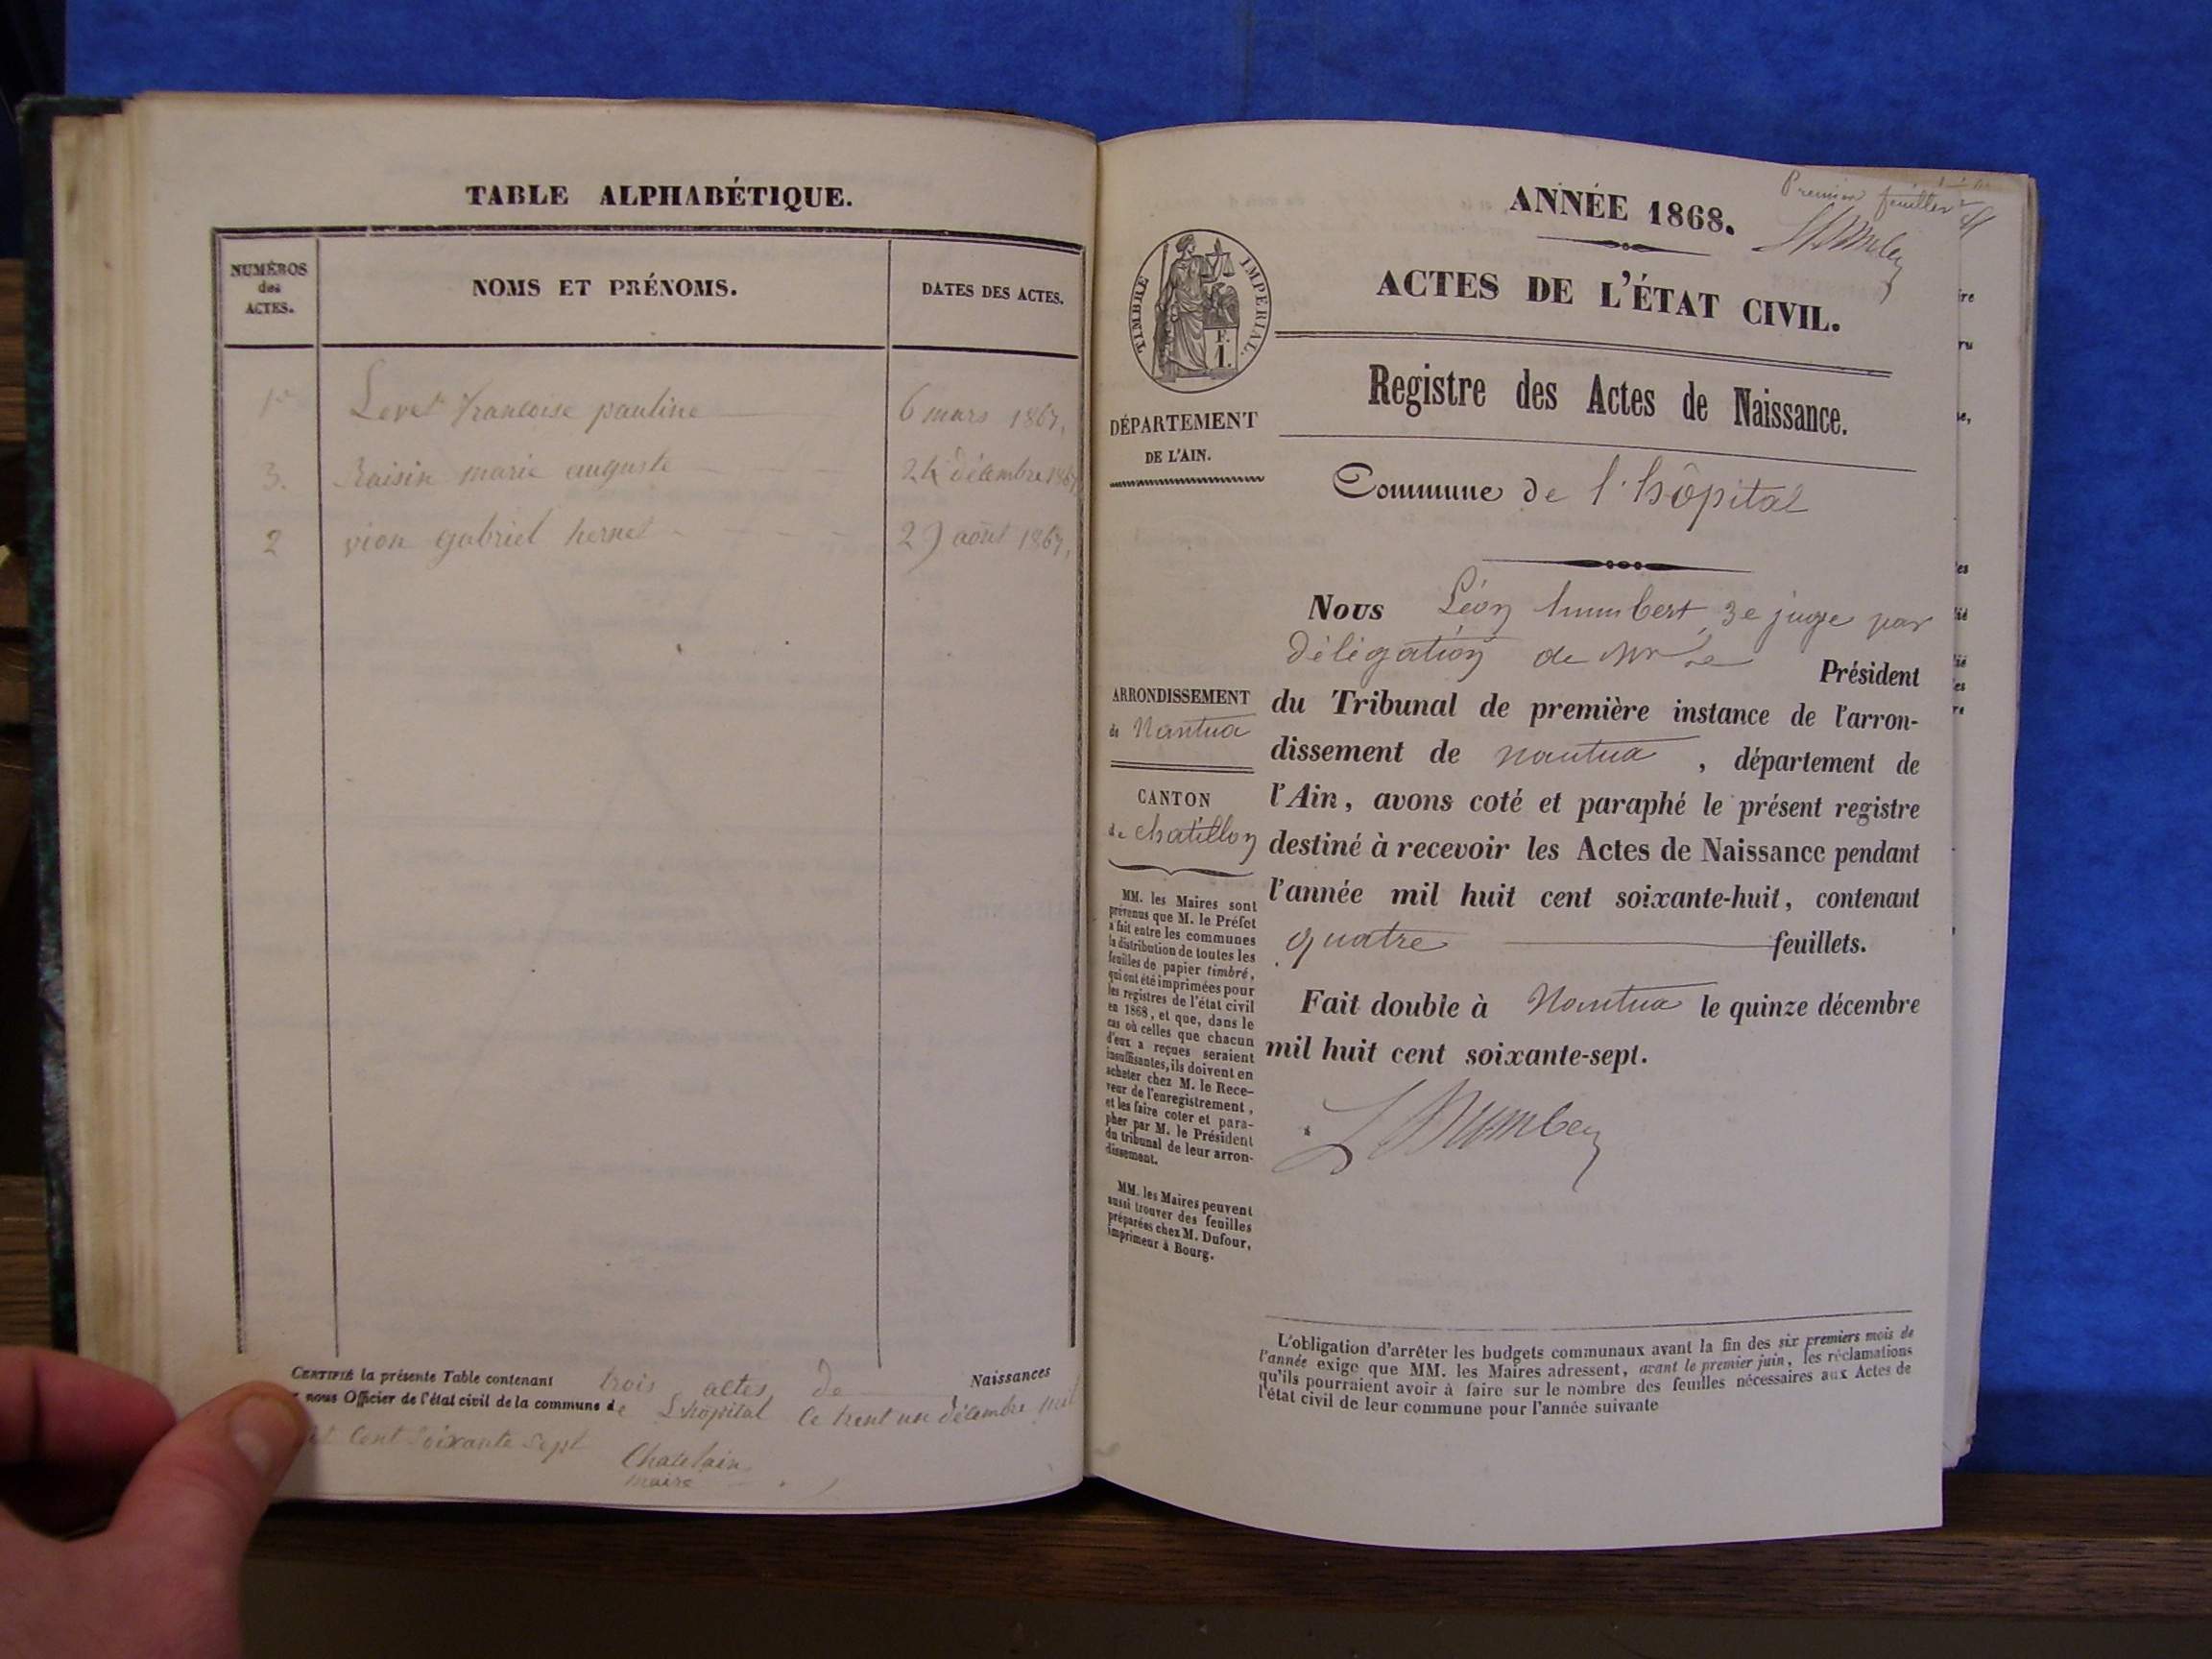 TABLE ALPHABÉTIQUE.
NUMÉROS
des
ACTES.
NOMS ET PRÉNOMS.
DATES DES ACTES.
1er Levet françoise pauline 6 mars 1867,
3. Raisin marie auguste 24 décembre 1867
2 vion gabriel hernest 29 août 1867,
CERTIFIÉ la présente Table contenant trois actes de Naissances
nous Officier de l'état civil de la commune de Lhopital le trent un décembre mil
cent soixante sept
Chatelain
maire
Premier feuillet
ANNÉE 1868.
ACTES DE L'ÉTAT CIVIL.
TIMBRE IMPERIAL.
F.
1.
Registre des Actes de Naissance.
DÉPARTEMENT
DE L'AIN.
Commune de l'hôpital
Nous Léon humbert, 3e juge par
délégation de Mr le Président
du Tribunal de première instance de l'arron-
dissement de nantua, département de
l'Ain, avons coté et paraphé le présent registre
destiné à recevoir les Actes de Naissance pendant
l'année mil huit cent soixante-huit, contenant
quatre feuillets.
Fait double à Nantua le quinze décembre
mil huit cent soixante-sept.
L Humbert
ARRONDISSEMENT
de Nantua
CANTON
de chatillon
MM. les Maires sont
prévenus que M. le Préfet
a fait entre les communes
la distribution de toutes les
feuilles de papier timbré,
qui ont été imprimées pour
les registres de l'état civil
en 1868, et que, dans le
cas où celles que chacun
d'eux a reçues seraient
insuffisantes, ils doivent en
acheter chez M. le Rece-
veur de l'enregistrement,
et les faire coter et para-
pher par M. le Président
du tribunal de leur arron-
dissement.
MM. les Maires peuvent
aussi trouver des feuilles
préparées chez M. Dufour,
imprimeur à Bourg.
L'obligation d'arrêter les budgets communaux avant la fin des six premiers mois de
l'année exige que MM. les Maires adressent, avant le premier juin, les réclamations
qu'ils pourraient avoir à faire sur le nombre des feuilles nécessaires aux Actes de
l'état civil de leur commune pour l'année suivante